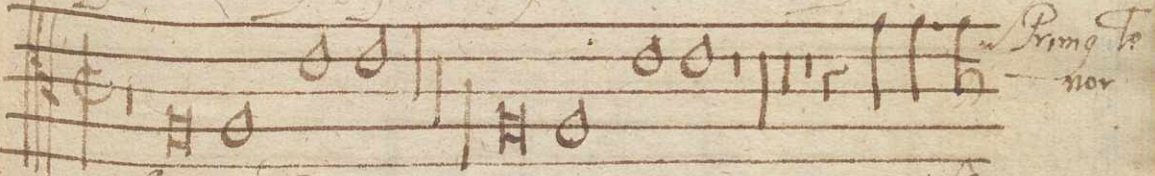 Primꝰ Te
nor